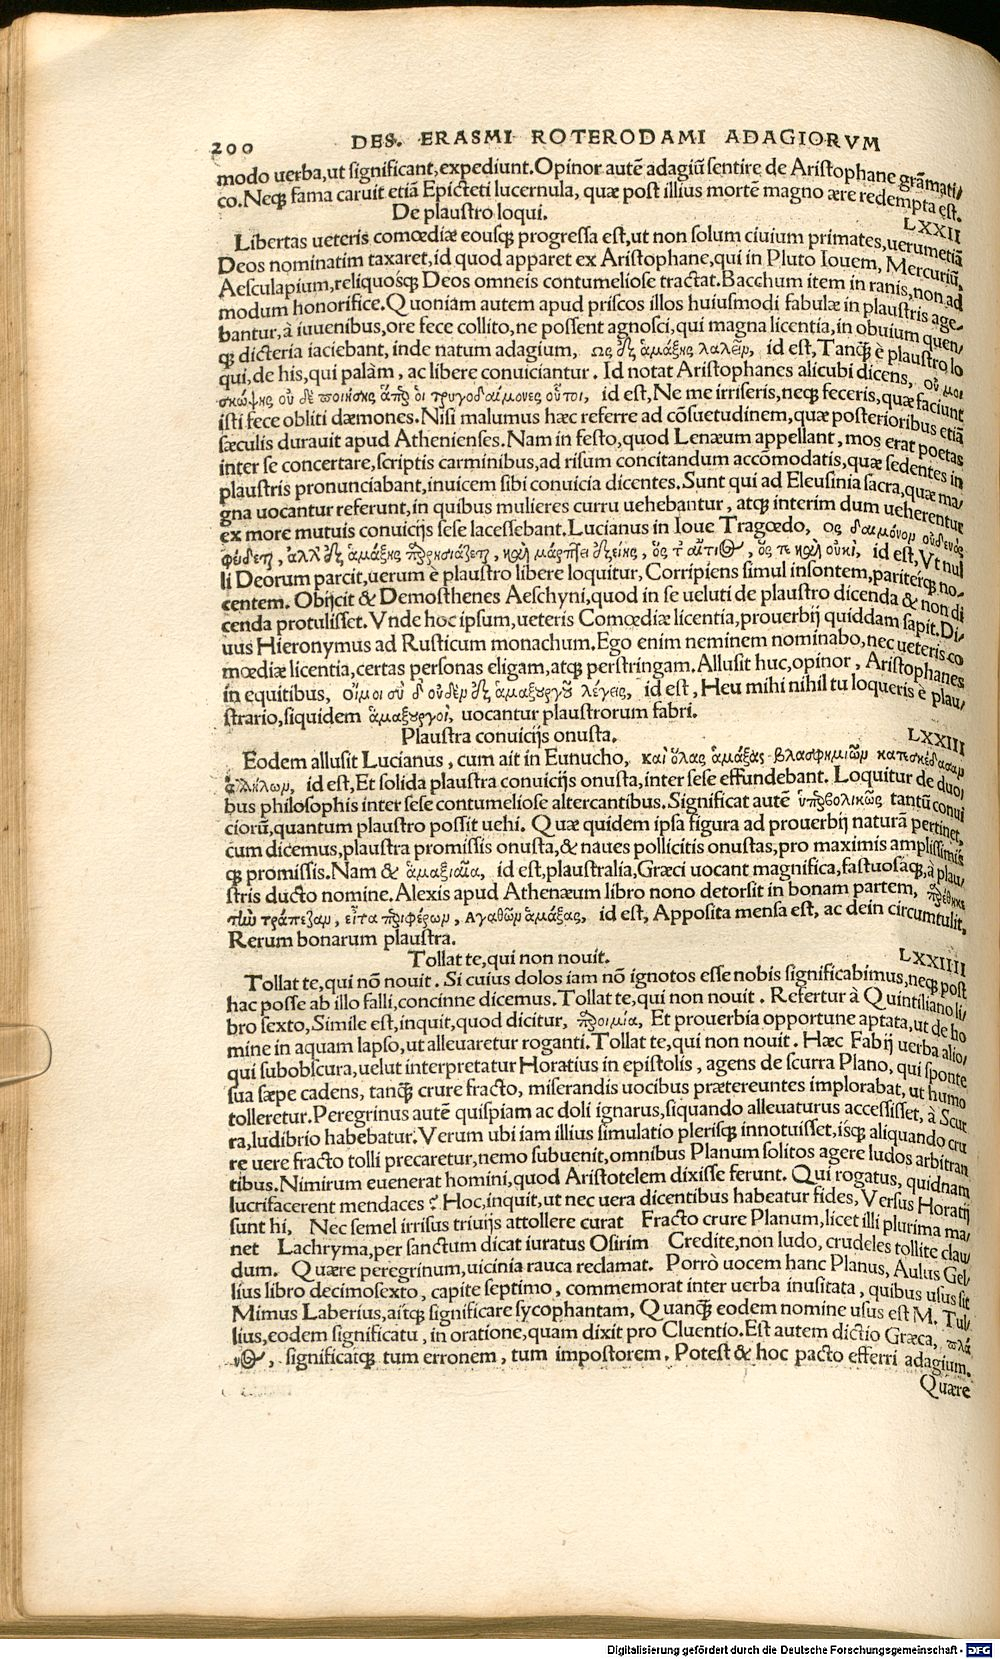 200 DES. ERASMI ROTERODAMI ADAGIORVM
modo uerba,ut significant,expediunt.Opinor autē adagiū sentire de Aristophane grāmati/
co.Neq; fama caruit etiā Epicteti lucernula, quæ post illius mortē magno ære redempta est.
De plaustro loqui. LXXII
Libertas ueteris comœdiæ eousq; progressa est,ut non solum ciuium primates,uerumetiā
Deos nominatim taxaret,id quod apparet ex Aristophane,qui in Pluto Iouem, Mercuriū,
Aesculapium,reliquosq; Deos omneis contumeliose tractat.Bacchum item in ranis,non ad
modum honorifice.Quoniam autem apud priscos illos huiusmodi fabulæ in plaustris age/
bantur,à iuuenibus,ore fece collito,ne possent agnosci,qui magna licentia,in obuium quen/
q; dicteria iaciebant, inde natum adagium, ὡς ἐξ ἁμάξης λαλεῖν, id est,Tanq̄ è plaustro lo
qui,de his,qui palàm, ac libere conuiciantur. Id notat Aristophanes alicubi dicens, οὐ μοι
σκώψης οὐ δὲ ποιήσης ἅπερ οἱ τρυγοδαίμονες οὗτοι, id est,Ne me irriseris,neq; feceris,quæ faciunt
isti fece obliti dæmones. Nisi malumus hæc referre ad cōsuetudinem,quæ posterioribus etiā
sæculis durauit apud Athenienses.Nam in festo,quod Lenæum appellant, mos erat poetas
inter se concertare,scriptis carminibus,ad risum concitandum accōmodatis,quæ sedentes in
plaustris pronunciabant,inuicem sibi conuicia dicentes.Sunt qui ad Eleusinia sacra,quæ ma/
gna uocantur referunt,in quibus mulieres curru uehebantur, atq; interim dum ueherentur
ex more mutuis conuicijs sese lacessebant.Lucianus in Ioue Tragœdo, ὃς δαιμόνων οὐδενὸς
φείδεται, ἀλλ' ἐξ ἁμάξης παρρησιάζεται, id est,Vt nul
li Deorum parcit,uerum è plaustro libere loquitur, Corripiens simul insontem,pariterq; no/
centem. Obijcit & Demosthenes Aeschyni,quod in se ueluti de plaustro dicenda & non di
cenda protulisset.Vnde hoc ipsum,ueteris Comœdiæ licentia,prouerbij quiddam sapit.Di/
uus Hieronymus ad Rusticum monachum.Ego enim neminem nominabo,nec ueteris co
mœdiæ licentia,certas personas eligam,atq; perstringam.Allusit huc,opinor, Aristophanes
in equitibus, οἴμοι σὺ δ' οὐδὲν ἐξ ἁμαξουργοῦ λέγεις, id est, Heu mihi nihil tu loqueris è plau/
strario,siquidem ἁμαξουργοὶ, uocantur plaustrorum fabri.
Plaustra conuicijs onusta. LXXIII
Eodem allusit Lucianus, cum ait in Eunucho, καὶ ὅλας ἁμάξας βλασφημιῶν κατεσκέδασαν
ἀλλήλων, id est,Et solida plaustra conuicijs onusta,inter sese effundebant. Loquitur de duo/
bus philosophis inter sese contumeliose altercantibus.Significat autē ὑπερβολικῶς tantū conui
ciorū,quantum plaustro possit uehi. Quæ quidem ipsa figura ad prouerbij naturā pertinet,
cum dicemus,plaustra promissis onusta,& naues pollicitis onustas,pro maximis amplissimis
q; promissis.Nam & ἁμαξιαῖα, id est,plaustralia,Græci uocant magnifica,fastuosaq;,à plau/
stris ducto nomine.Alexis apud Athenæum libro nono detorsit in bonam partem, παρέθηκε
τὴν τράπεζαν, εἶτα παραφέρων, Αγαθῶν ἁμάξας, id est, Apposita mensa est, ac dein circumtulit,
Rerum bonarum plaustra.
Tollat te,qui non nouit. LXXIIII
Tollat te,qui nō nouit. Si cuius dolos iam nō ignotos esse nobis significabimus,neq; post
hac posse ab illo falli,concinne dicemus.Tollat te,qui non nouit. Refertur à Quintiliano li/
bro sexto,Simile est,inquit,quod dicitur, παροιμία, Et prouerbia opportune aptata,ut de ho
mine in aquam lapso,ut alleuaretur roganti.Tollat te,qui non nouit. Hæc Fabij uerba alio/
qui subobscura,uelut interpretatur Horatius in epistolis, agens de scurra Plano, qui sponte
sua sæpe cadens, tanq̄ crure fracto, miserandis uocibus prætereuntes implorabat, ut humo
tolleretur.Peregrinus autē quispiam ac doli ignarus,siquando alleuaturus accessisset, à Scur
ra,ludibrio habebatur.Verum ubi iam illius simulatio plerisq; innotuisset,isq; aliquando cru
re uere fracto tolli precaretur,nemo subuenit,omnibus Planum solitos agere ludos arbitran
tibus.Nimirum euenerat homini,quod Aristotelem dixisse ferunt. Qui rogatus, quidnam
lucrifacerent mendaces? Hoc,inquit,ut nec uera dicentibus habeatur fides, Versus Horatij
sunt hi, Nec semel irrisus triuijs attollere curat Fracto crure Planum,licet illi plurima ma/
net Lachryma,per sanctum dicat iuratus Osirim Credite,non ludo, crudeles tollite clau/
dum. Quære peregrinum,uicinia rauca reclamat. Porrò uocem hanc Planus, Aulus Gel/
lius libro decimosexto, capite septimo, commemorat inter uerba inusitata, quibus usus sit
Mimus Laberius,aitq; significare sycophantam, Quanq̄ eodem nomine usus est M. Tul/
lius,eodem significatu, in oratione,quam dixit pro Cluentio.Est autem dictio Græca, πλά
νος, significatq; tum erronem, tum impostorem. Potest & hoc pacto efferri adagium.
Quære
Digitalisierung gefördert durch die Deutsche Forschungsgemeinschaft - DFG